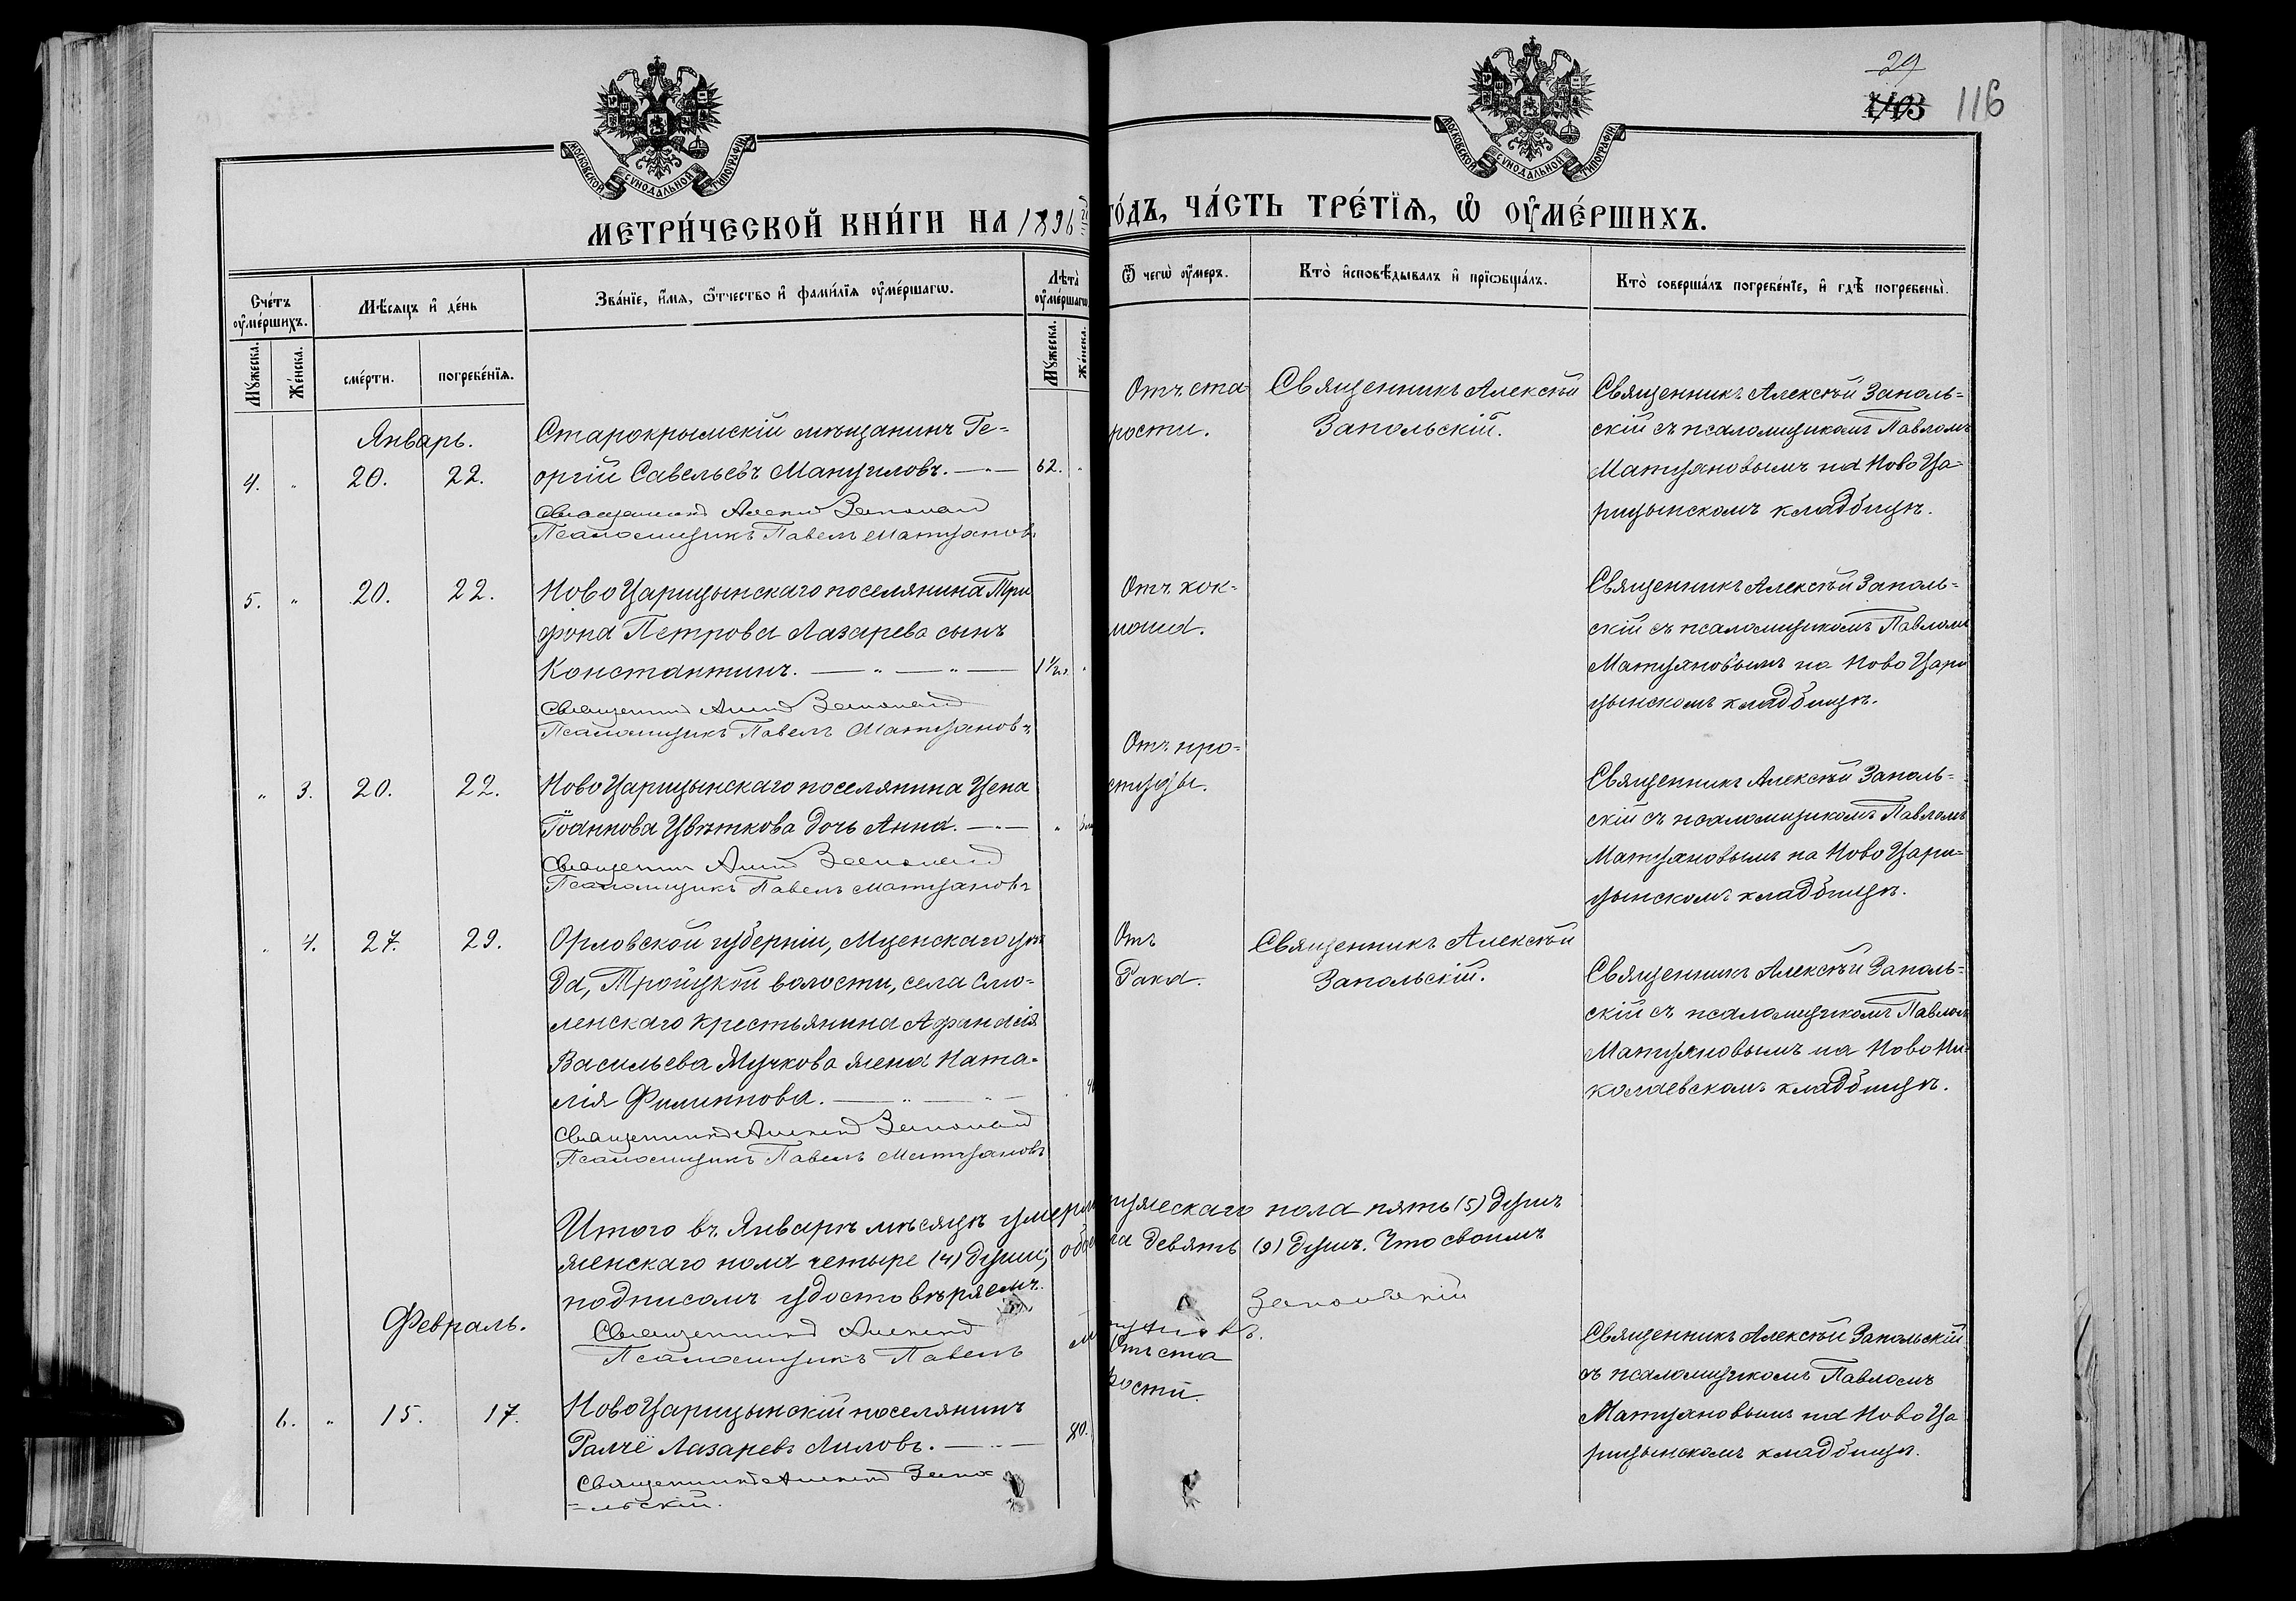 29
1403 116
МОСКОВСКОЙ СѴНОДАЛЬНОЙ ТИПОГРАФІИ
МОСКОВСКОЙ СѴНОДАЛЬНОЙ ТИПОГРАФІИ
МЕТРИ́ЧЕСКОЙ КНИ́ГИ НА 1896й
ГО́ДЪ, ЧА́СТЬ ТРЕ́ТІѦ, Ѡ҆ ОУ҆МЕ́РШИХЪ.
Сче́тъ оу҆ме́ршихъ.
Мѣ́сѧцъ и҆ де́нь
Зва́нїе, и҆́мѧ, ѻ҆́тчество и҆ фами́лїѧ оу҆ме́ршагѡ.
Лѣта̀ оу҆ме́ршагѡ
Мꙋ́жеска.
Же́нска.
сме́рти.
погребе́нїѧ.
Мꙋ́жеска.
Же́нска.
Ѿ чегѡ̀ оу҆́меръ.
Кто̀ и҆сповѣ́дывалъ и҆ прїѡбща́лъ.
Кто̀ соверша́лъ погребе́нїе, и҆ гдѣ̀ погребены̀.
Январь.
4. „ 20. 22.
Старокрымскій мѣщанинъ Ге-
оргій Савельевъ Мануиловъ. — „ — 62. „
Священникъ Алексѣй Запольскій
Псаломщикъ Павелъ Матузановъ
Отъ ста
рости.
Священникъ Алексѣй
Запольскій.
Священникъ Алексѣй Заполь=
скій съ псаломщикомъ Павломъ
на Ново Ца-
рицынскомъ кладбищѣ.
5. „ 20. 22.
Ново Царицынскаго поселянина Три
фона Петрова Лазарева сынъ
Константинъ. — „ — „ — 1½
Священникъ Алексѣй Запольскій
Псаломщикъ Павелъ
Отъ кок-
люша.
Священникъ Алексѣй Заполь=
скій съ псаломщикомъ Павломъ
на Ново Цари
цынскомъ кладбищѣ.
„ 3. 20. 22.
Ново Царицынскаго поселянина Цена
Іоаннова Цвѣткова дочь Анна. — „ —
Священникъ Алексѣй Запольскій
Псаломщикъ Павелъ
Отъ про-
студы.
Священникъ Алексѣй Заполь=
скій съ псаломщикомъ Павломъ
на Ново Цари-
цынскомъ кладбищѣ.
„ 4. 27. 29.
Орловской губерніи, Мценскаго уѣз
да, Тройцкой волости, села Смо-
ленскаго крестьянина Афанасія
Васильева Мучкова жена Ната-
лія Филиппова. — „ — „ —
Священникъ Алексѣй Запольскій
Псаломщикъ Павелъ
Отъ
Рака.
Священникъ Алексѣй
Запольскій.
Священникъ Алексѣй Заполь=
скій съ псаломщикомъ Павлом
на Ново Ни-
колаевскомъ кладбищѣ.
Итого въ Январѣ мѣсяцѣ умерло мужескаго пола пять (5) душъ
женскаго пола четыре (4) души; обоега девять (9) душъ. Что своимъ
подписомъ удостовѣряемъ.
Священникъ Алексѣй Запольскій
Псаломщикъ Павелъ
Февраль.
6. „ 15. 17.
Ново Царицынскій поселянинъ
Ралчё Лазаревъ Лиловъ. — „ — 80.
Священникъ Алексѣй Запо
=льскій.
Отъ ста
рости.
Священникъ Алексѣй Запольскій
съ псаломщикомъ Павломъ
на Ново Ца
рицынскомъ кладбищѣ.